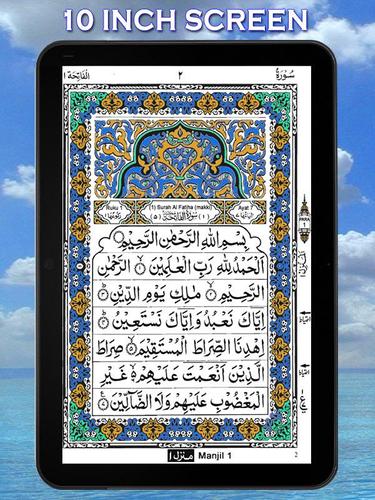 10 INCH SCREEN
سُورَةُ ٢ اَلْفَاتِحَة ١
Ruku 1 (1) Surah Al Fatiha (makki) Ayat 7
(٥) سُوْرَةُ الْفَاتِحَةِ (١)
PARA 1
بِسْمِ اللهِ الرَّحْمٰنِ الرَّحِيْمِ
اَلْحَمْدُ لِلّٰهِ رَبِّ الْعٰلَمِيْنَ ۙ١ الرَّحْمٰنِ
الرَّحِيْمِ ۙ٢ مٰلِكِ يَوْمِ الدِّيْنِ ؕ٣
اِيَّاكَ نَعْبُدُ وَاِيَّاكَ نَسْتَعِيْنُ ؕ٤
اِهْدِنَا الصِّرَاطَ الْمُسْتَقِيْمَ ۙ٥ صِرَاطَ
الَّذِيْنَ اَنْعَمْتَ عَلَيْهِمْ ۙ٦ غَيْرِ
الْمَغْضُوْبِ عَلَيْهِمْ وَلَا الضَّآلِّيْنَ ٧
منزل ١ Manjil 1 2